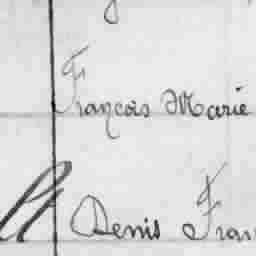 François Marie
Denis Fran